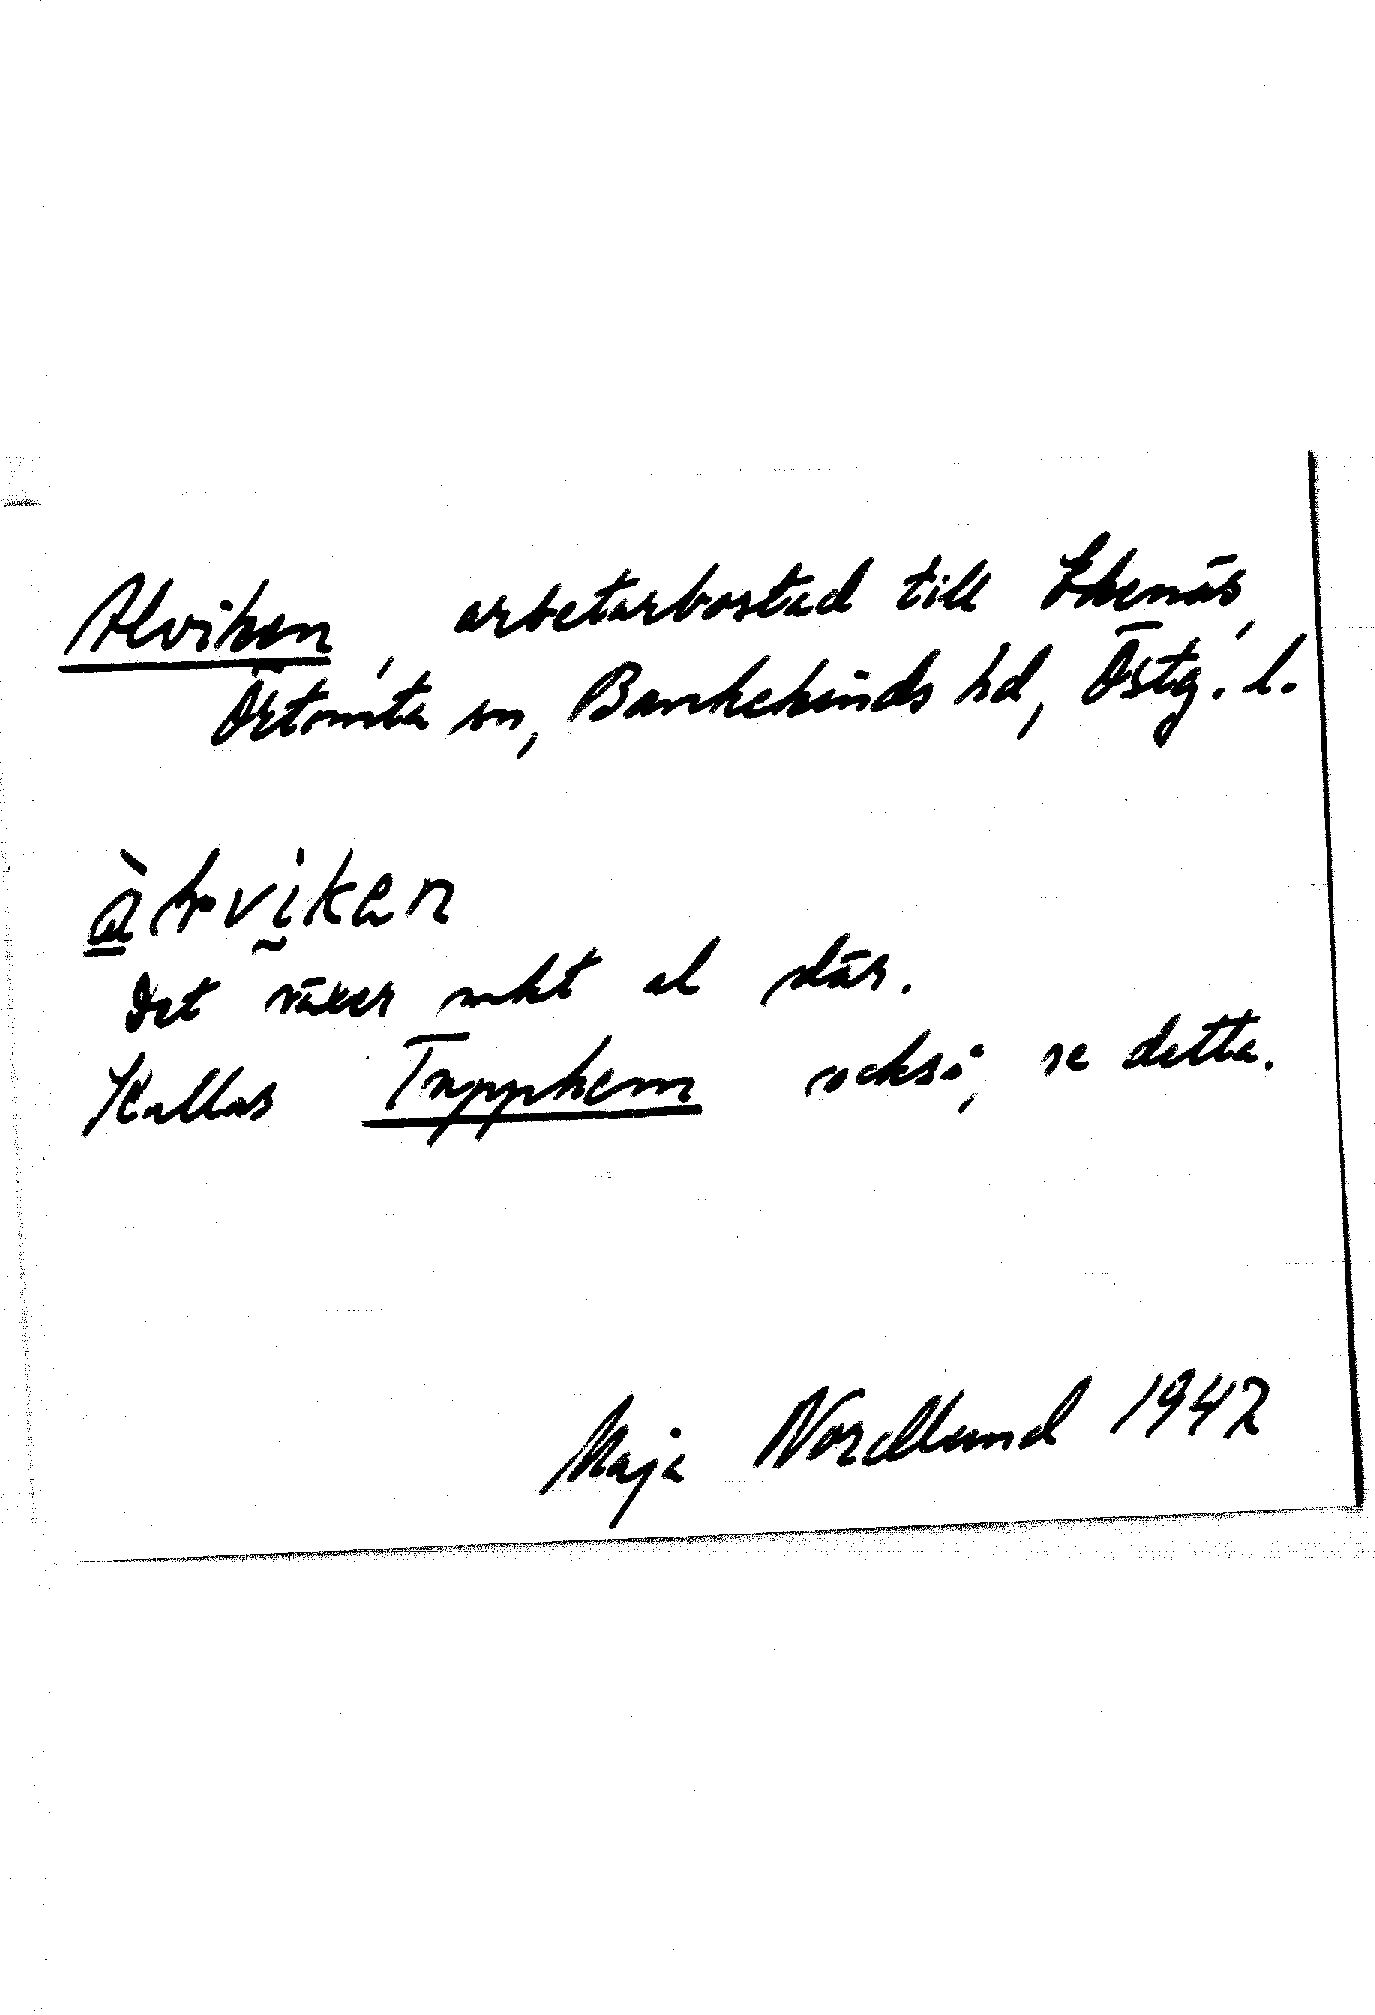 Alviken, arbetarbostad till Ekenäs,
Örtomta sn, Bankekinds hd, Östg. l.
àlviken
Det växer mkt al där.
Kallas Trypphem också, se detta.
Maja Nordlund 1947